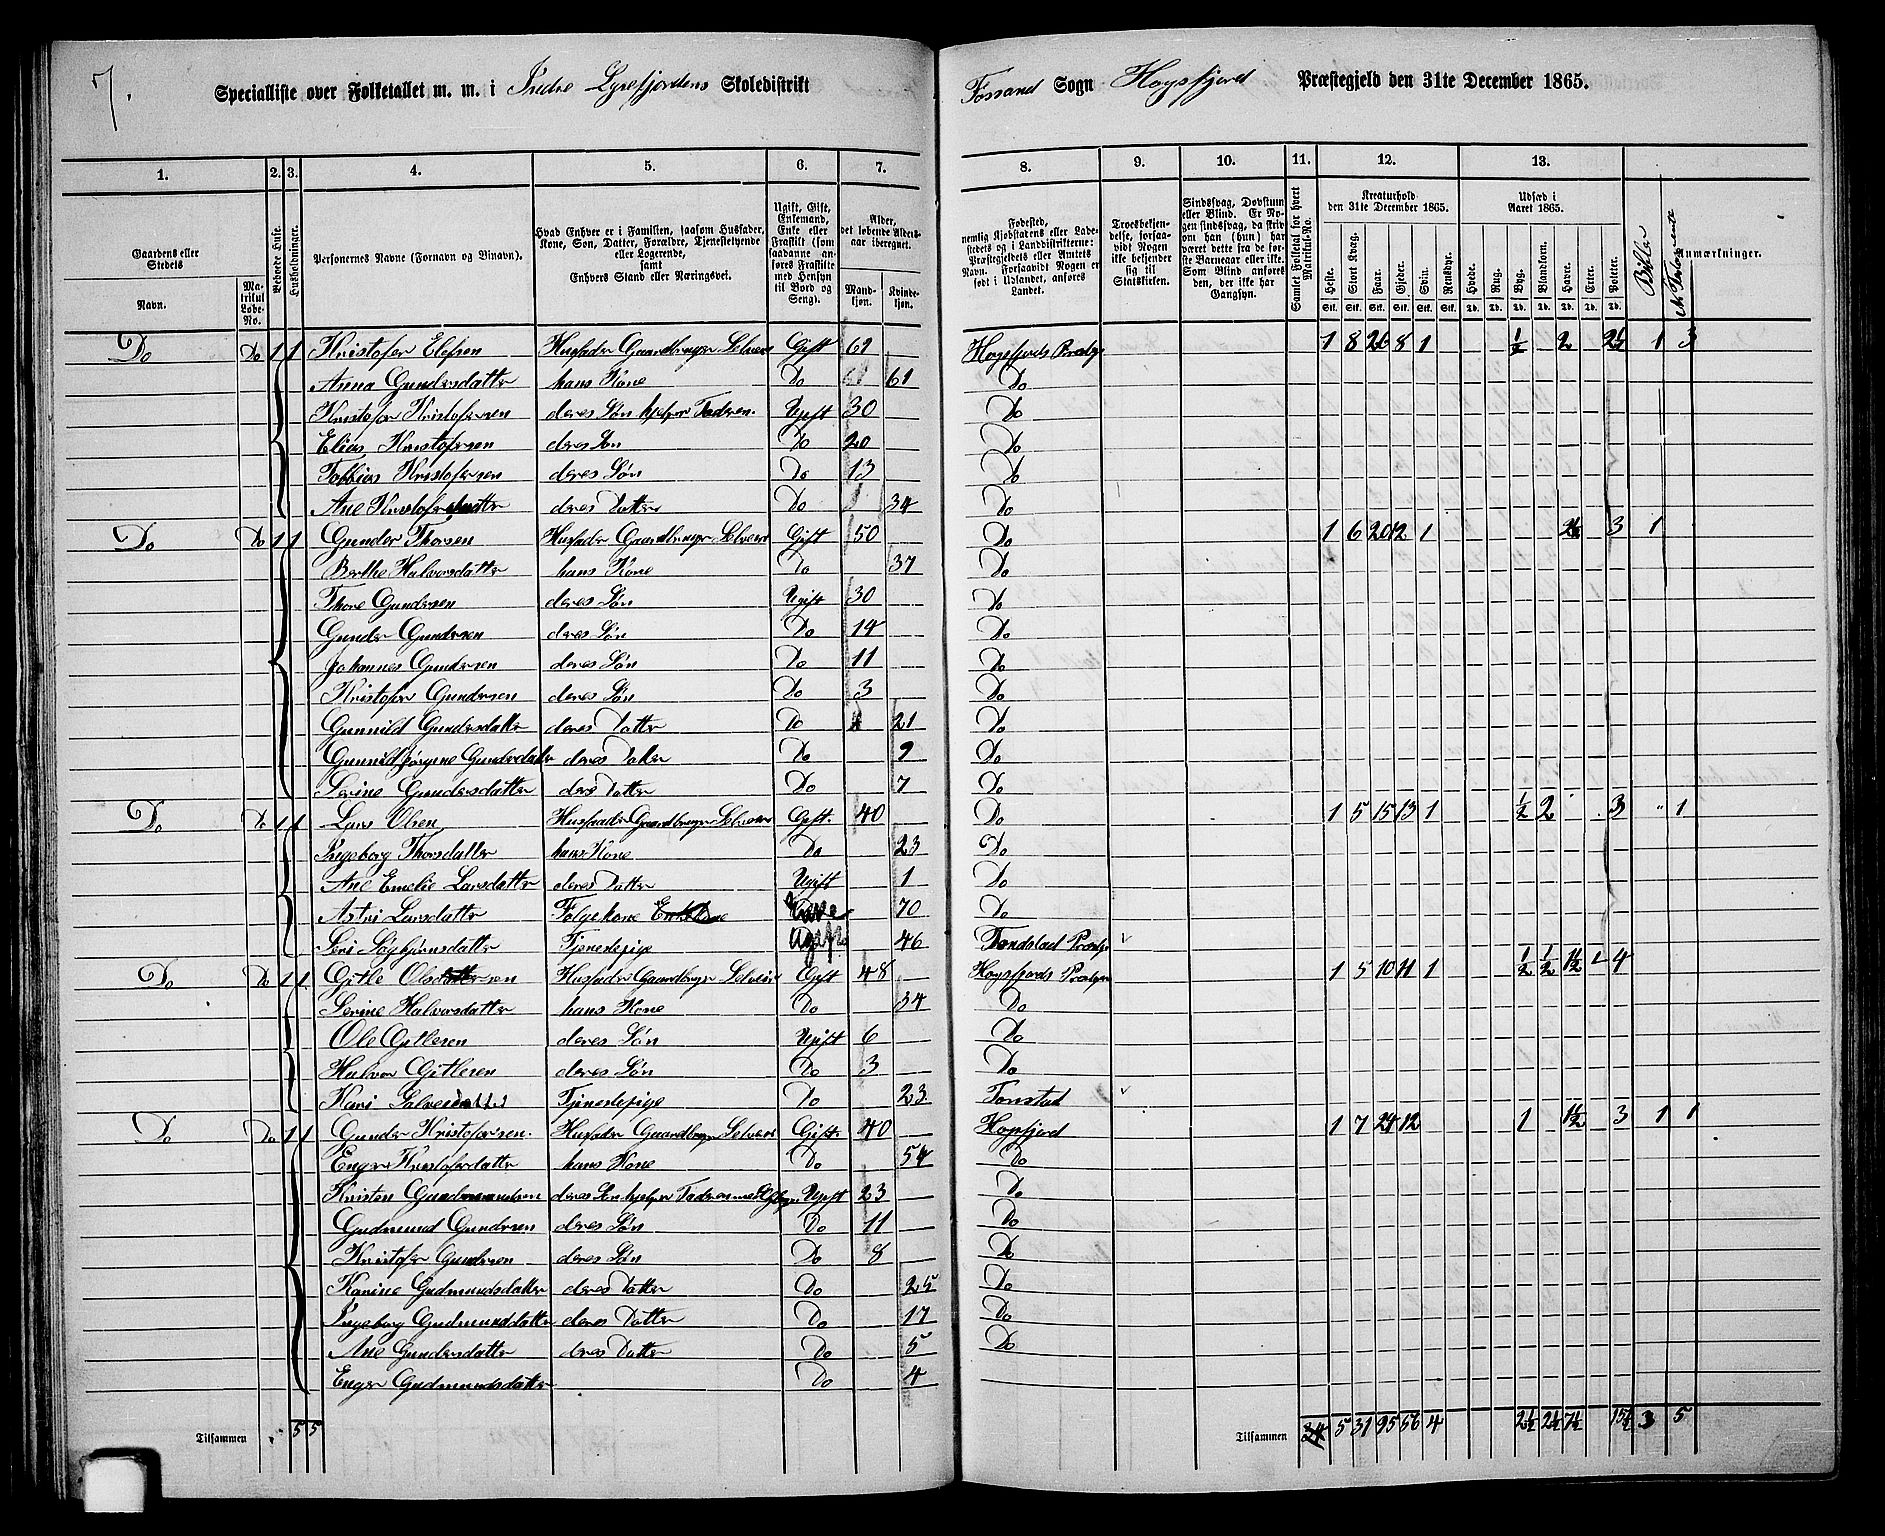 7.
Specialliste over Folketallet m. m. i Indre Lysefjordens Skoledistrikt
Fossand Sogn Høgsfjord Præstegjeld den 31te December 1865.
1. 2. 3. 4. 5. 6. 7. 8. 9. 10. 11. 12. 13.
Gaardens eller Stedets
Navn.
Matrikul Løbe-No.
Beboede Huse.
Husholdninger.
Personernes Navne (Fornavn og Binavn).
Hvad Enhver er i Familien, saasom Husfader, Kone, Søn, Datter, Forældre, Tjenestetyende eller Logerende, samt Enhvers Stand eller Næringsvei.
Ugift, Gift, Enkemand, Enke eller Fraskilt (som saadanne anføres Fraskilte med Hensyn til Bord og Seng).
Alder, det løbende Aldersaar iberegnet.
Mandkjøn.
Kvindekjøn.
Fødested, nemlig Kjøbstadens eller Ladestedets og i Landdistrikterne: Præstegjeldets eller Amtets Navn. Forsaavidt Nogen er født i Udlandet, anføres Landet.
Troesbekjendelse, forsaavidt Nogen ikke bekjender sig til Statskirken.
Sindssvag, Døvstum eller Blind. Er Nogen sindssvag, da skrives om han (hun) har været dette fra de første Barneaar eller ikke. Som Blind anføres den, der ikke har Gangsyn.
Samlet Folketal for hvert Matrikul-No.
Kreaturhold den 31te December 1865.
Heste. Stort Kvæg. Faar. Gjeder. Svin. Rensdyr.
Udsæd i Aaret 1865.
Hvede. Rug. Byg. Blandkorn. Havre. Erter. Poteter.
Anmærkninger.
Do Do 1 1 Kristofer Elefsen Husfader Gaardbruger Selveier Gift 61 Høgsfjords Præstgj 1 8 26 8 1 ½ 2 2½ 1 3
Anna Gundersdatter hans Kone Do 61 Do
Kristofer Kristofersen deres Søn hjelper Faderen. Ugift 30 Do
Elias Kristofersen deres Søn Do 20 Do
Tobbias Kristofersen deres Søn Do 13 Do
Ane Kristofersdatter deres Datter Do 34 Do
Do Do 1 1 Gunder Thorsen Husfader Gaardbruger Selveier Gift 50 Do 1 6 20 12 1 2½ 3 1
Berthe Halvorsdatter hans Kone Do 37 Do
Thore Gundersen deres Søn Ugift 30 Do
Gunder Gundersen deres Søn Do 14 Do
Johannes Gundersen deres Søn Do 11 Do
Kristofer Gundersen deres Søn Do 3 Do
Gunnild Gundersdatter deres Datter Do 21 Do
Gunnild Jørgine Gundersdatter deres Datter Do 9 Do
Serine Gundersdatter deres Datter Do 7 Do
Do Do 1 1 Lars Olsen Husfader Gaardbruger Selveier Gift. 40 Do 1 5 15 13 1 ½ 2 3 " 1
Ingeborg Thorsdatter hans Kone Do 23 Do
Ane Emelie Larsdatter deres Datter Ugift 1 Do
Astri Larsdatter Føgekone Enke 70 Do
Seri Sigbjørnsdatter Tjenestepige Ugift 46 Præstgj
Do Do 1 1 Gitle Olsen Husfader Gaardbruger Selveier Gift 48 Høgsfjords Præstgj 1 5 10 11 1 ½ ½ 1½ 4
Serine Halvorsdatter hans Kone Do 34 Do
Ole Gitlesen deres Søn Ugift 6 Do
Halvor Gitlesen deres Søn Do 3 Do
Kari Salvesdatter Tjenestepige Do 23 Tonstad
Do Do 1 1 Gunder Kristofersen. Husfader Gaardbruger Selveier Gift. 40 Høgsfjord 1 7 24 12 1 1½ 3 1 1
Enger Kristoferdatter hans Kone Do 54 Do
Kristen Gudmundsen deres Søn hjelper Faderen Ugift 23 Do
Gudmund Gundersen deres Søn Do 11 Do
Kristofer Gundersen deres Søn Do 8 Do
Karine Gudmundsdatter deres Datter Do 25 Do
Ingeborg Gudmundsdatter deres Datter Do 17 Do
Ane Gundersdatter deres Datter Do 5 Do
Enger Gudmundsdatter Do 4
Tilsammen 5 5
Tilsammen 34 5 31 95 56 4 2½ 2½ 7½ 15½ 3 5